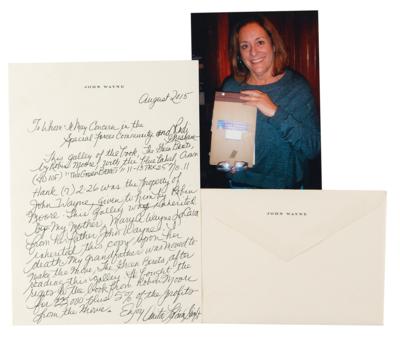 JOHN WAYNE
August 2015
To Whom It May Concern in the
Special Forces Community and
This galley of the book, The Green Berets,
by Robin Moore, with the blue label, Crown
"The Green Berets" 11-
Hank (?) 2-26 was the property of
John Wayne, given to him by Robin
Moore. This galley was inherited
by my Mother, Mary A Wayne LaCava
from her father, John Wayne. I
inherited this copy upon her
death. My grandfather was moved to
make the movie, The Green Berets, after
reading this galley. He bought the
rights to the book from Robin Moore
for plus 5% of the profits
from the movie. Enjoy
JOHN WAYNE